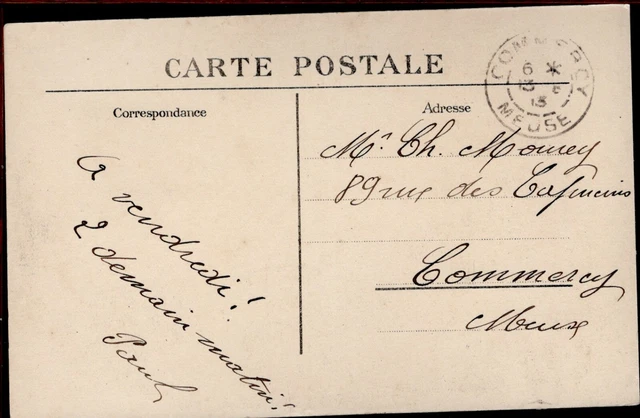 CARTE POSTALE
COMMERCY
6 *
MEUSE
Correspondance
Adresse
A vendredi!
2 demain matin!
Paul
Mr Ch. Mourey
89 rue des Capucins
Commercy
Meuse